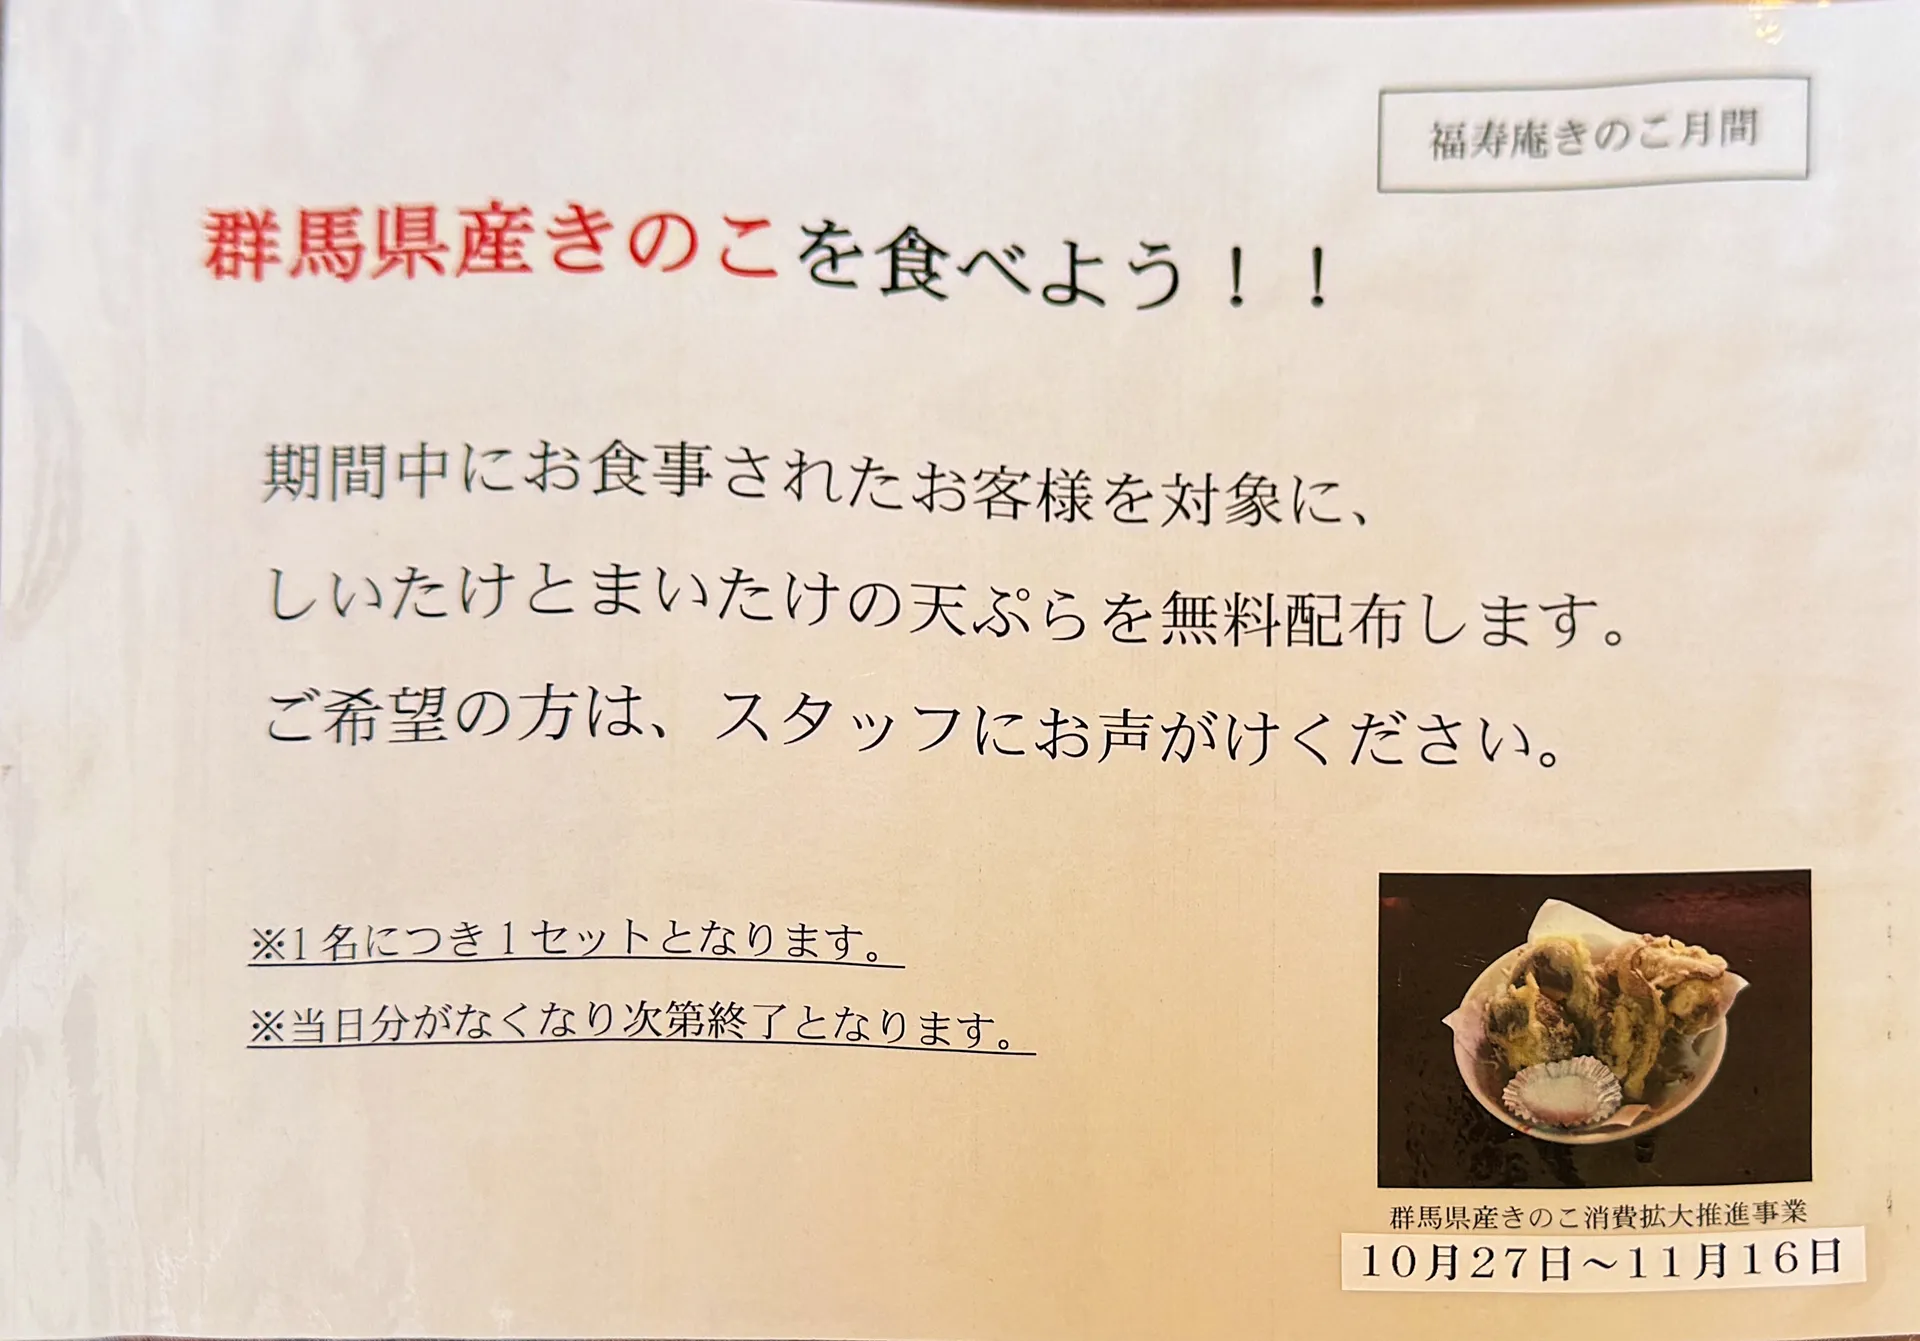 福寿庵きのこ月間
群馬県産きのこを食べよう！！
期間中にお食事されたお客様を対象に、
しいたけとまいたけの天ぷらを無料配布します。
ご希望の方は、スタッフにお声がけください。
※1名につき1セットとなります。
※当日分がなくなり次第終了となります。
群馬県産きのこ消費拡大推進事業
10月27日～11月16日